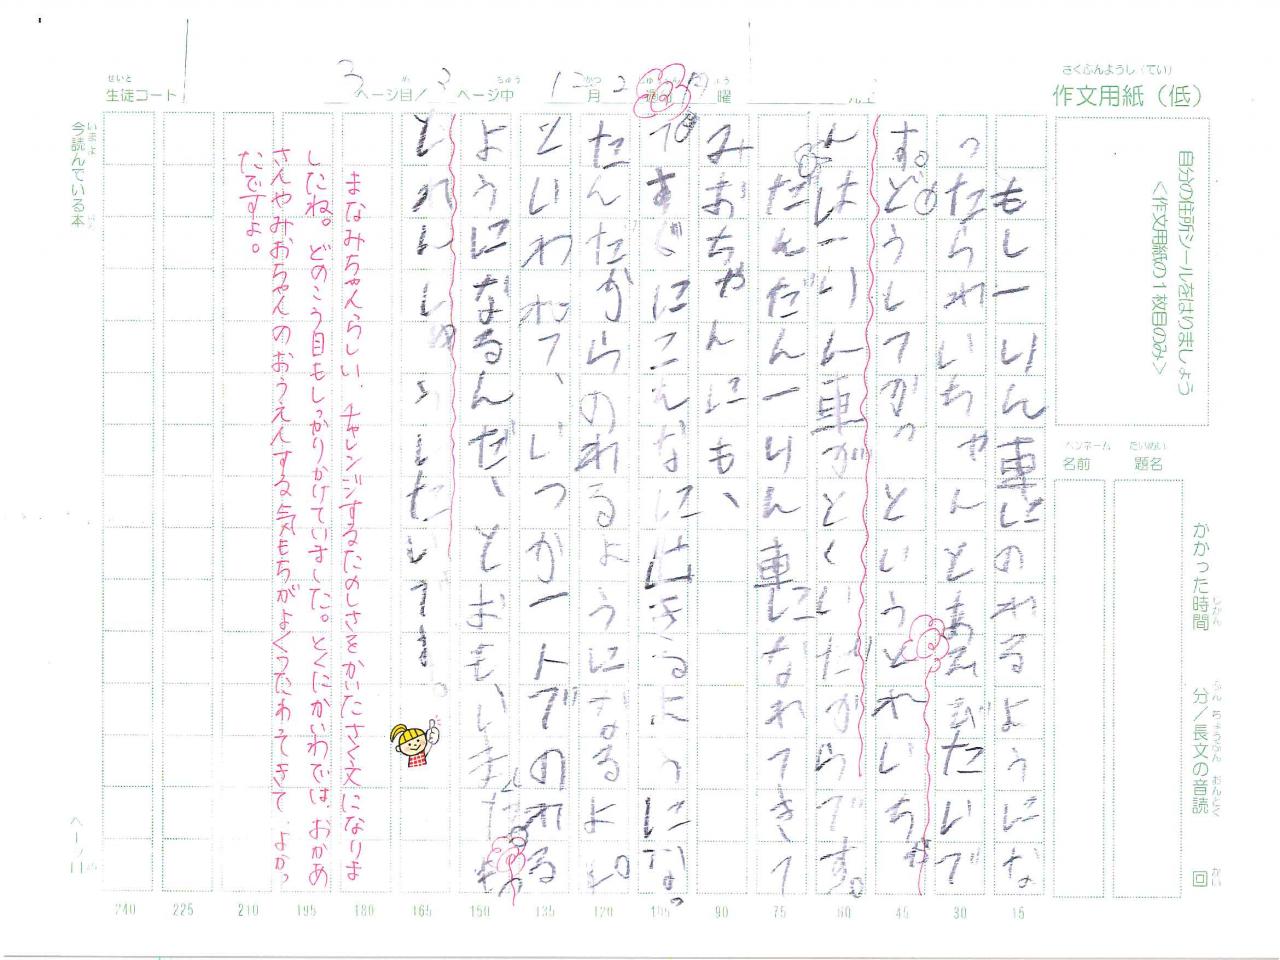 さくぶんようし（てい）
作文用紙（低）
せいと
生徒コード
3ページ目／3ページ中
12月2週
曜
自分の住所シールをはりましょう
＜作文用紙の1枚目のみ＞
ペンネーム
名前
だいめい
題名
かかった時間
分／長文の音読
回
もし一りん車にのれるようにな
ったられいちゃんとあそびたいで
す。どうしてかっというとれいち
ゃんは一りん車がとくいだからです。
だんだん一りん車になれてきて
みおちゃんにも、
「すぐにこんなにはきるようにな
たんだからのれるようになるよ。」
といわれて、いつか一人でのれる
ようになるんだ、とおもいました。
いれんしゅうしたいです。
まなみちゃんらしい、チャレンジするたのしさをかいたさく文になりま
したね。どのこう目もしっかりかけていました。とくにかいわでは、おかあ
さんやみおちゃんのおうえんする気もちがよくつたわってきて、よかっ
たですよ。
今読んでいる本
ページ
240 225 210 195 180 165 150 135 120 105 90 75 60 45 30 15